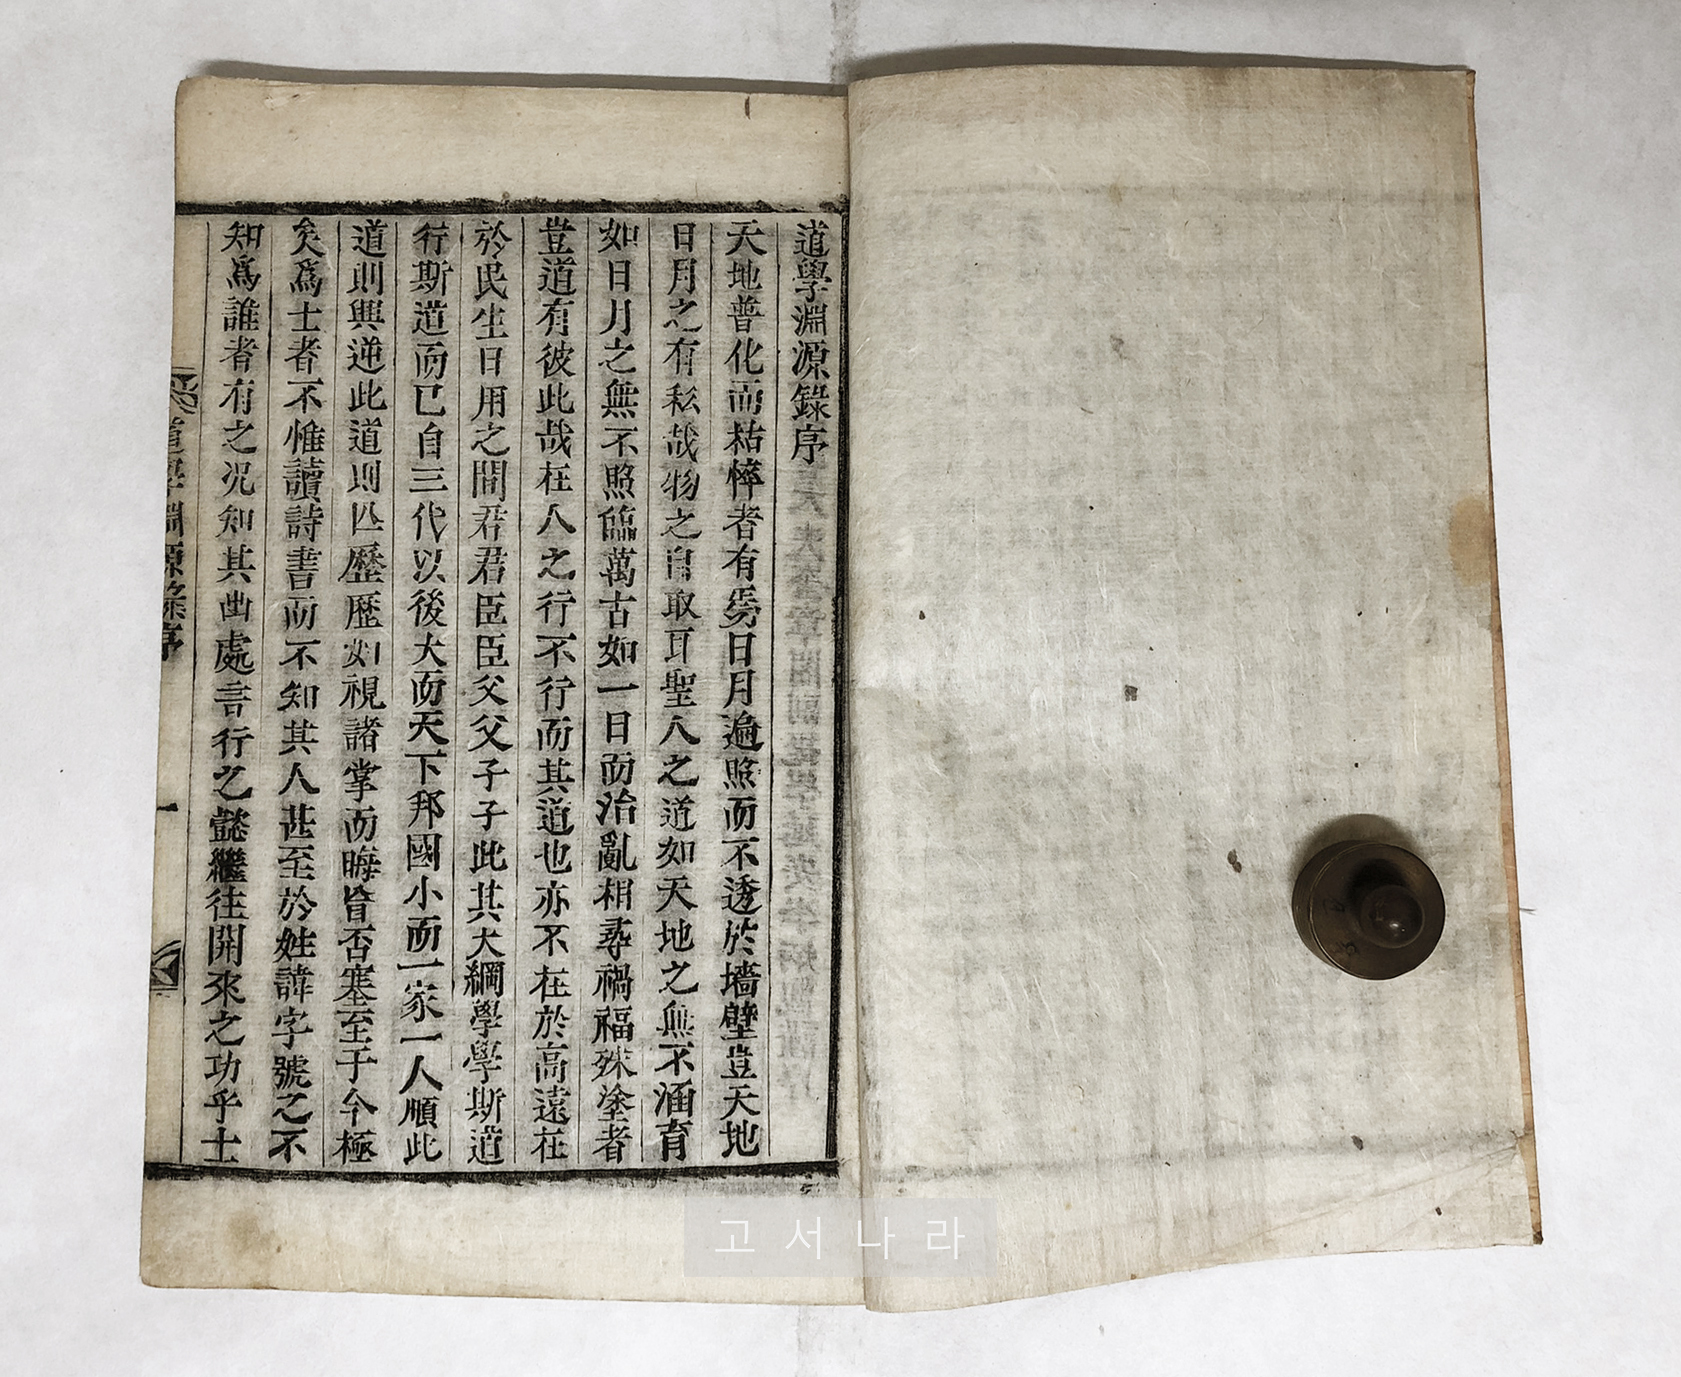 道學淵源錄序
天地普化而枯悴者有焉日月遍照而不透於墻壁豈天地
日月之有私哉物之自取耳聖人之道如天地之無不涵育
如日月之無不照臨萬古如一日而治亂相尋禍福殊塗者
豈道有彼此哉在人之行不行而其道也亦不在於高遠在
於民生日用之間君君臣臣父父子子此其大綱學學斯道
行斯道而已自三代以後大而天下邦國小而一家一人順此
道則興逆此道則亡歷歷如視諸掌而晦盲否塞至于今極
矣爲士者不惟讀詩書而不知其人甚至於姓諱字號之不
知爲誰者有之况知其出處言行之懿繼往開來之功乎士
道學淵源錄序
一
고서나라